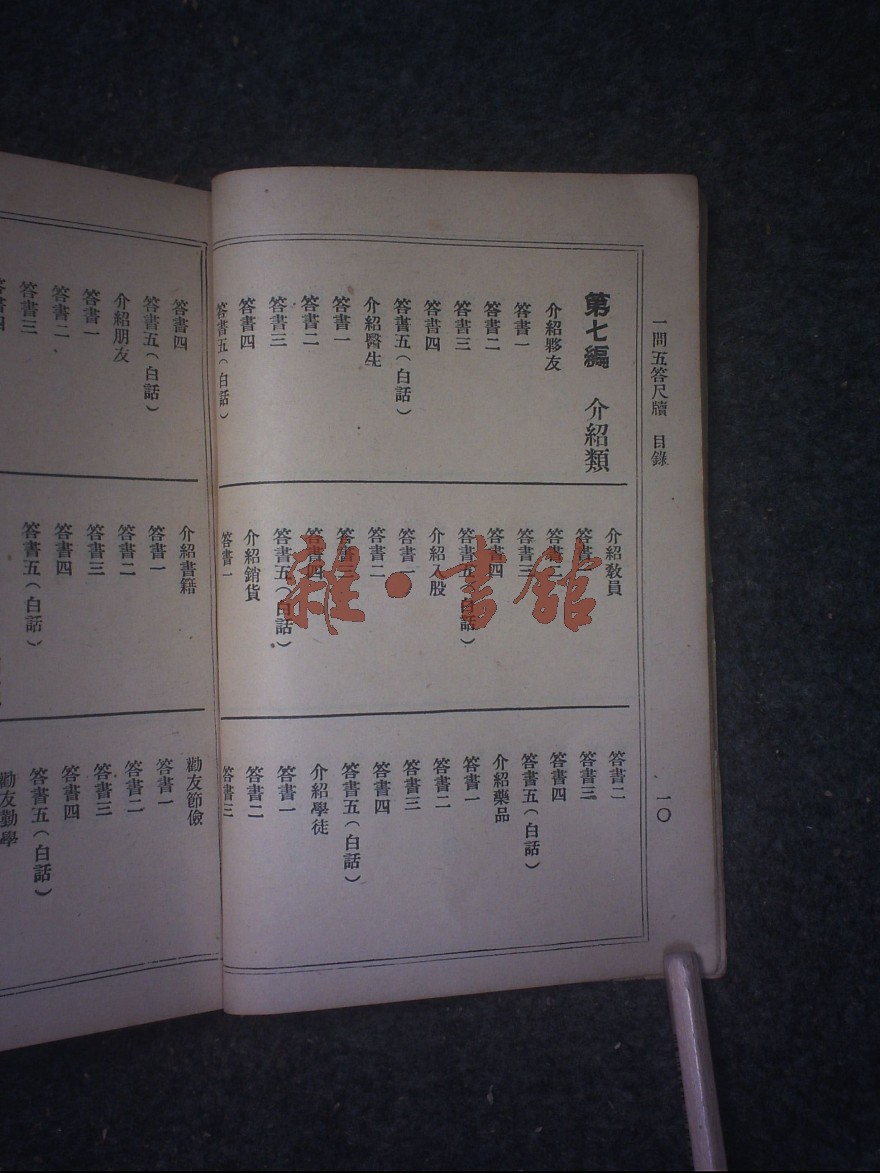 一問五答尺牘 目錄 一〇
第七編 介紹類
介紹夥友
答書一
答書二
答書三
答書四
答書五(白話)
介紹醫生
答書一
答書二
答書三
答書四
答書五(白話)
介紹教員
答書一
答書二
答書三
答書四
答書五(白話)
介紹入股
答書一
答書二
答書三
答書四
答書五(白話)
介紹銷貨
答書一
答書二
答書三
答書四
答書五(白話)
介紹藥品
答書一
答書二
答書三
答書四
答書五(白話)
介紹學徒
答書一
答書二
答書三
答書四
答書五(白話)
介紹朋友
答書一
答書二
答書三
答書四
介紹書籍
答書一
答書二
答書三
答書四
答書五(白話)
勸友節儉
答書一
答書二
答書三
答書四
答書五(白話)
勸友勤學
雜·書館